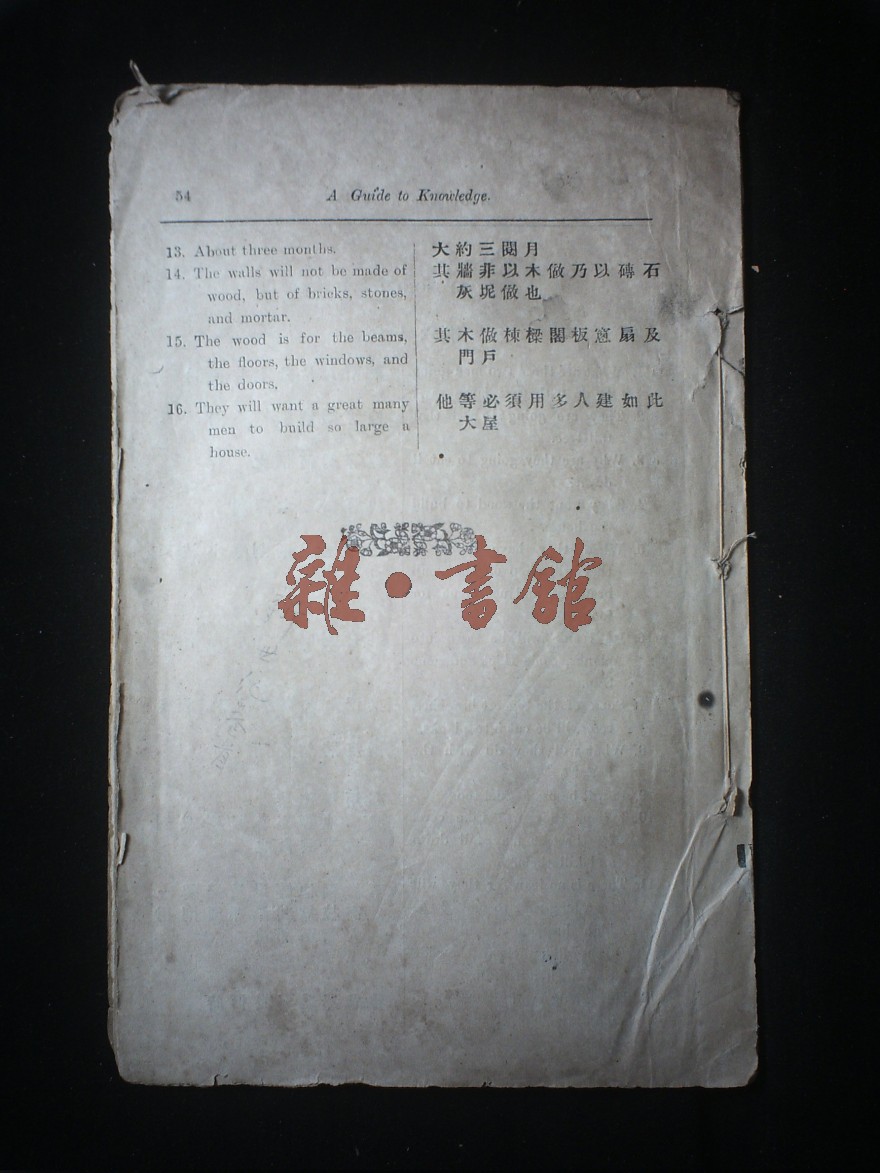 54
A Guide to Knowledge.
13. About three months.
大約三閱月
14. The walls will not be made of
wood, but of bricks, stones,
and mortar.
其牆非以木做乃以磚石
灰坭做也
15. The wood is for the beams,
the floors, the windows, and
the doors.
其木做棟樑閣板窻扇及
門戶
16. They will want a great many
men to build so large a
house.
他等必須用多人建如此
大屋
雜·書館